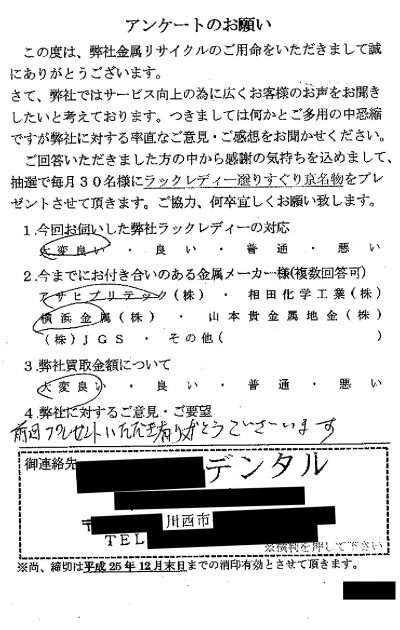 アンケートのお願い
この度は、弊社金属リサイクルのご用命をいただきまして誠
にありがとうございます。
さて、弊社ではサービス向上の為に広くお客様のお声をお聞き
したいと考えております。つきましては何かとご多用の中恐縮
ですが弊社に対する率直なご意見・ご感想をお聞かせください。
ご回答いただきました方の中から感謝の気持ちを込めまして、
抽選で毎月30名様にラックレディー選りすぐり京名物をプレ
ゼントさせて頂きます。ご協力、何卒宜しくお願い致します。
1.今回お伺いした弊社ラックレディーの対応
大変良い ・ 良い ・ 普通 ・ 悪い
2.今までにお付き合いのある金属メーカー様(複数回答可)
アサヒプリテック(株) ・ 相田化学工業(株)
横浜金属(株) ・ 山本貴金属地金(株)
(株)JGS ・ その他( )
3.弊社買取金額について
大変良い ・ 良い ・ 普通 ・ 悪い
4.弊社に対するご意見・ご要望
前回プレゼントいただき有りがとうございます
御連絡先 デンタル
〒 川西市
TEL
※横判を押して下さい
※尚、締切は平成25年12月末日までの消印有効とさせて頂きます。